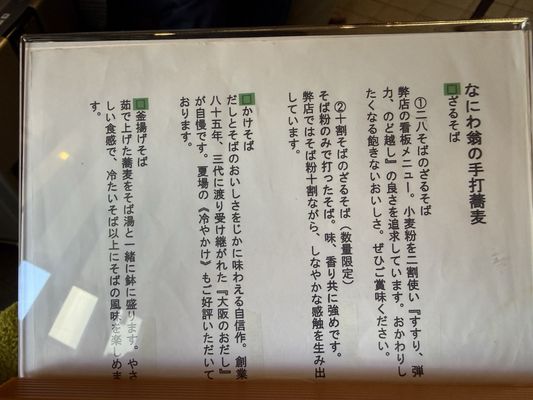 なにわ翁の手打蕎麦
□ざるそば
①二八そばのざるそば
弊店の看板メニュー。小麦粉を二割使い『すすり、弾
力、のど越し』の良さを追求しています。おかわりし
たくなる飽きないおいしさ。ぜひご賞味ください。
②十割そばのざるそば（数量限定）
そば粉のみで打ったそば。味、香り共に強めです。
弊店ではそば粉十割ながら、しなやかな感触を生み出
しています。
□かけそば
だしとそばのおいしさをじかに味わえる自信作。創業
八十五年、三代に渡り受け継がれた『大阪のおだし』
が自慢です。夏場の《冷やかけ》もご好評いただいて
おります。
□釜揚げそば
茹で上げた蕎麦をそば湯と一緒に鉢に盛ります。やさ
しい食感で、冷たいそば以上にそばの風味を楽しめま
す。